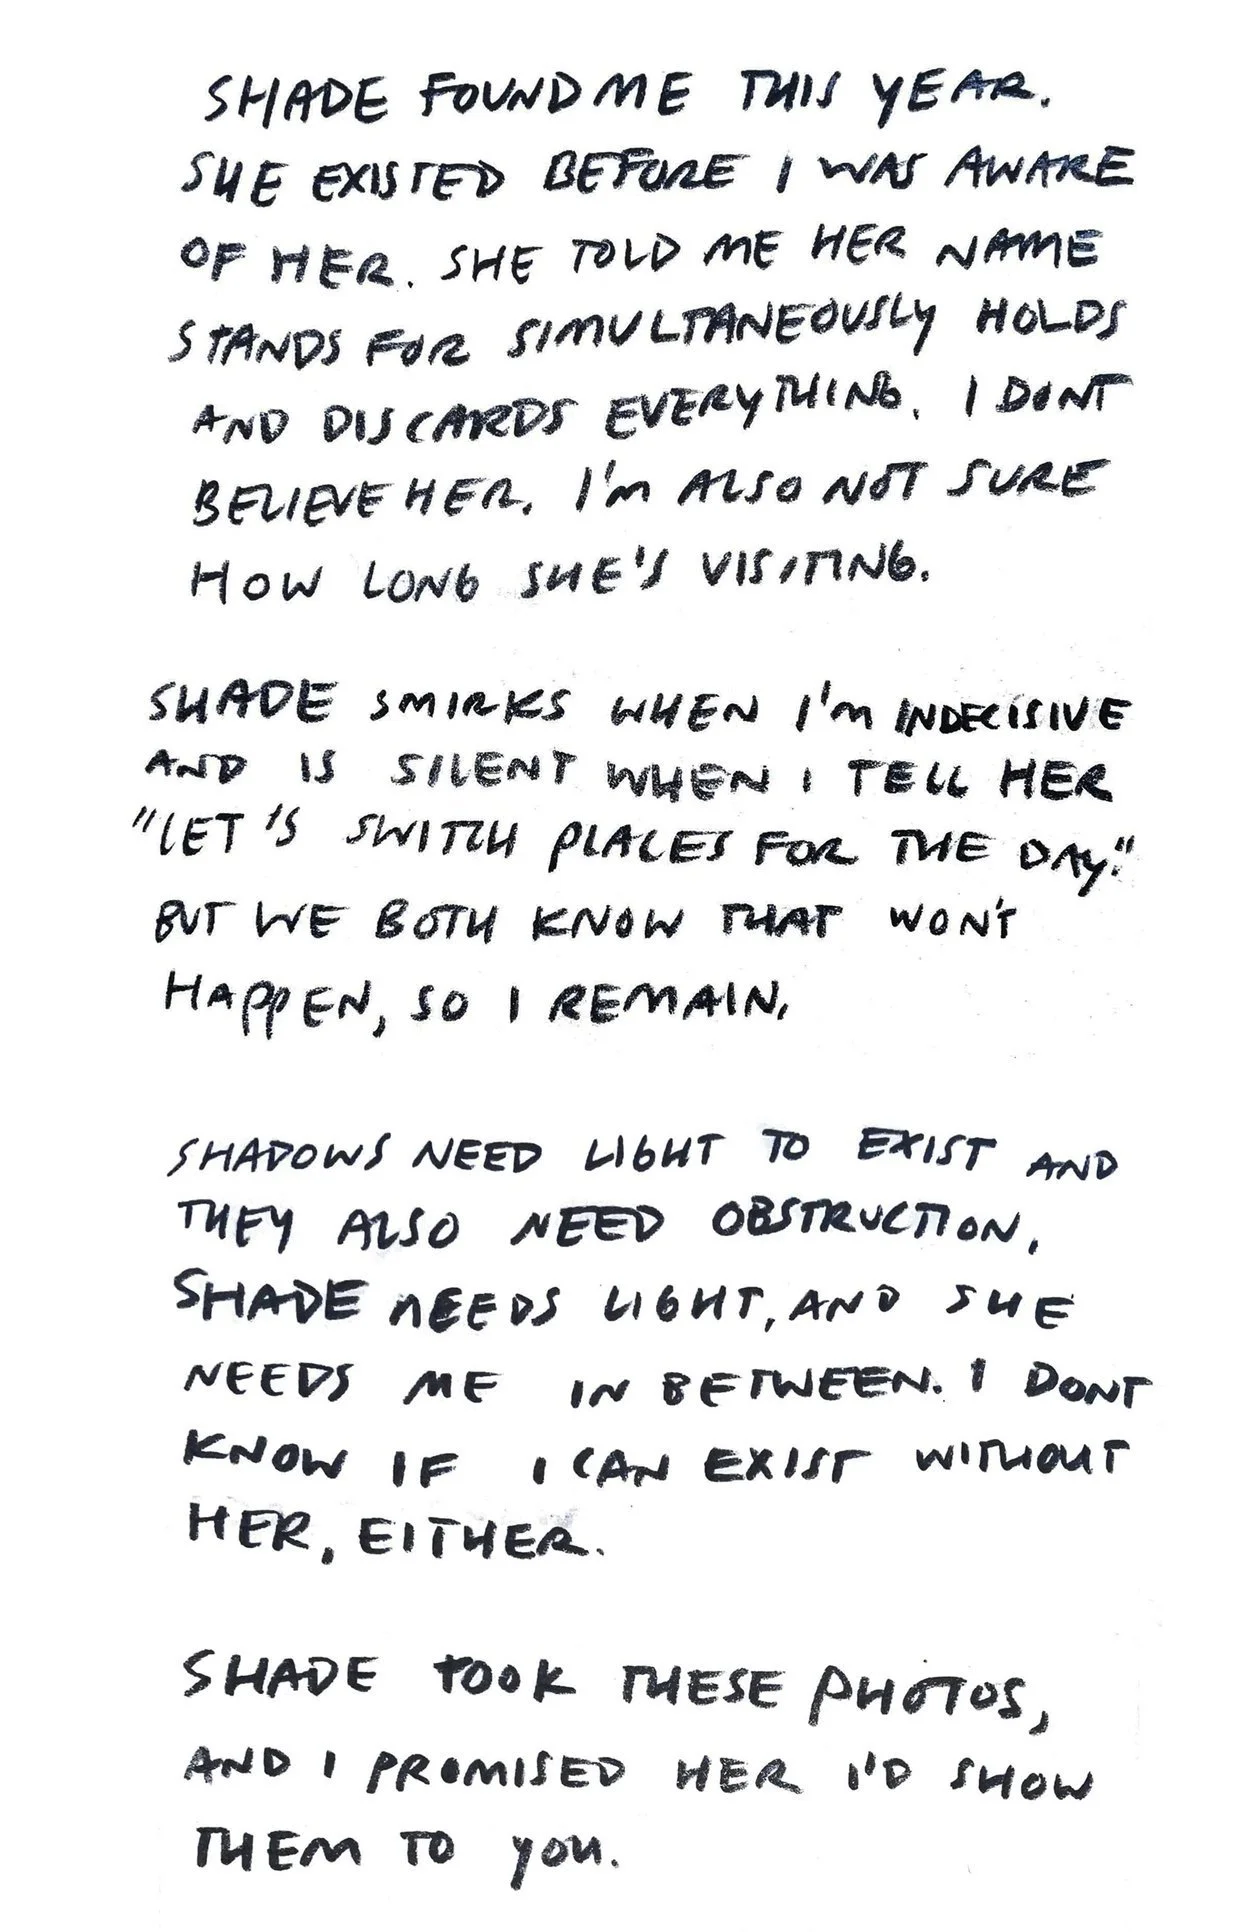 SHADE FOUND ME THIS YEAR.
SHE EXISTED BEFORE I WAS AWARE
OF HER. SHE TOLD ME HER NAME
STANDS FOR SIMULTANEOUSLY HOLDS
AND DISCARDS EVERYTHING. I DONT
BELIEVE HER. I'm ALSO NOT SURE
HOW LONG SHE'S VISITING.
SHADE SMIRKS WHEN I'm INDECISIVE
AND IS SILENT WHEN I TELL HER
"LET'S SWITCH PLACES FOR THE DAY."
BUT WE BOTH KNOW THAT WON'T
HAPPEN, SO I REMAIN.
SHADOWS NEED LIGHT TO EXIST AND
THEY ALSO NEED OBSTRUCTION.
SHADE NEEDS LIGHT, AND SHE
NEEDS ME IN BETWEEN. I DONT
KNOW IF I CAN EXIST WITHOUT
HER, EITHER.
SHADE TOOK THESE PHOTOS,
AND I PROMISED HER I'D SHOW
THEM TO YOU.